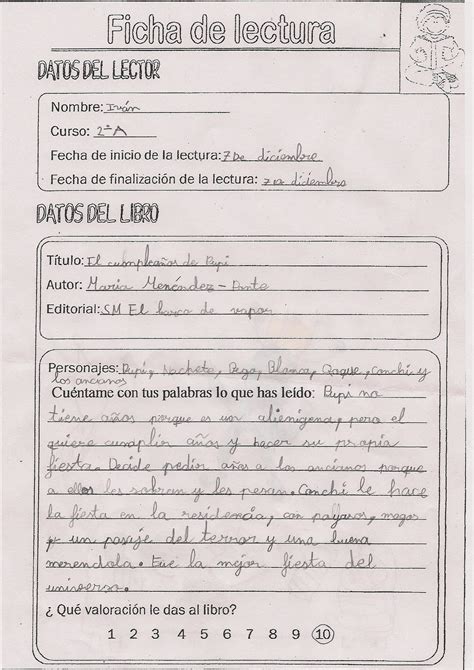 Ficha de lectura
DATOS DEL LECTOR
Nombre: Iván
Curso: 2ºA
Fecha de inicio de la lectura: 7 De diciembre
Fecha de finalización de la lectura: diciembre
DATOS DEL LIBRO
Título: El cumpleaños de Pupi
Autor: María Menéndez-Ponte
Editorial: SM El barco de vapor
Personajes: Pupi, Nachete, Bego, Blanca, Roque, Conchi y
los ancianos
Cuéntame con tus palabras lo que has leído: Pupi no
tiene años porque es un alienígena, pero el
quiere cumplir años y hacer su propia
fiesta. Decide pedir años a los ancianos porque
a ellos les sobran y les pesan. Conchi le hace
la fiesta en la residencia, con payasos, magos
un pasaje del terror y una buena
merendola. Fue la mejor fiesta del
universo.
¿ Qué valoración le das al libro?
1 2 3 4 5 6 7 8 9 10